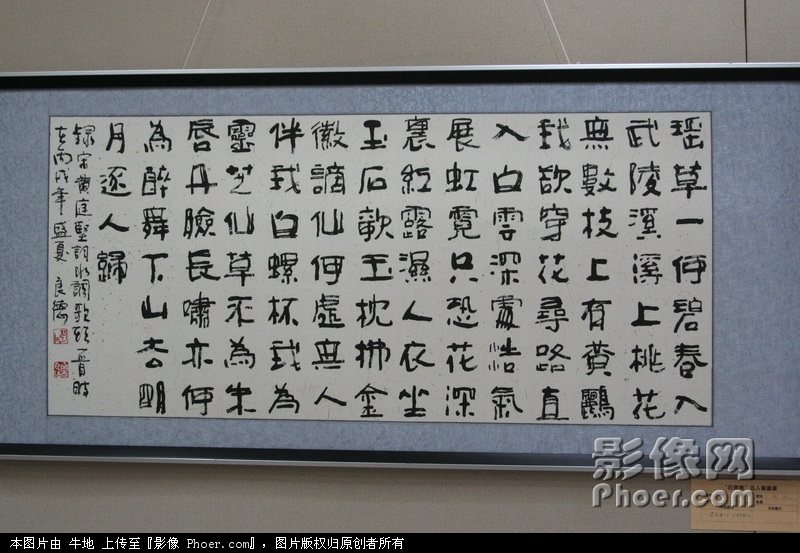 瑶草一何碧春入
武陵溪溪上桃花
無數枝上有黄鸝
我欲穿花尋路直
入白雲深處浩氣
展虹霓只恐花深
裏紅露濕人衣坐
玉石欹玉枕拂金
徽謫仙何處無人
伴我白螺杯我為
靈芝仙草不為朱
唇丹臉長嘯亦何
為醉舞下山去明
月逐人歸
録宋黄庭堅詞水調歌頭一首時
在丙戌年盛夏 良德
影像网
Phoer.com
本图片由 牛地 上传至『影像 Phoer.com』，图片版权归原创者所有